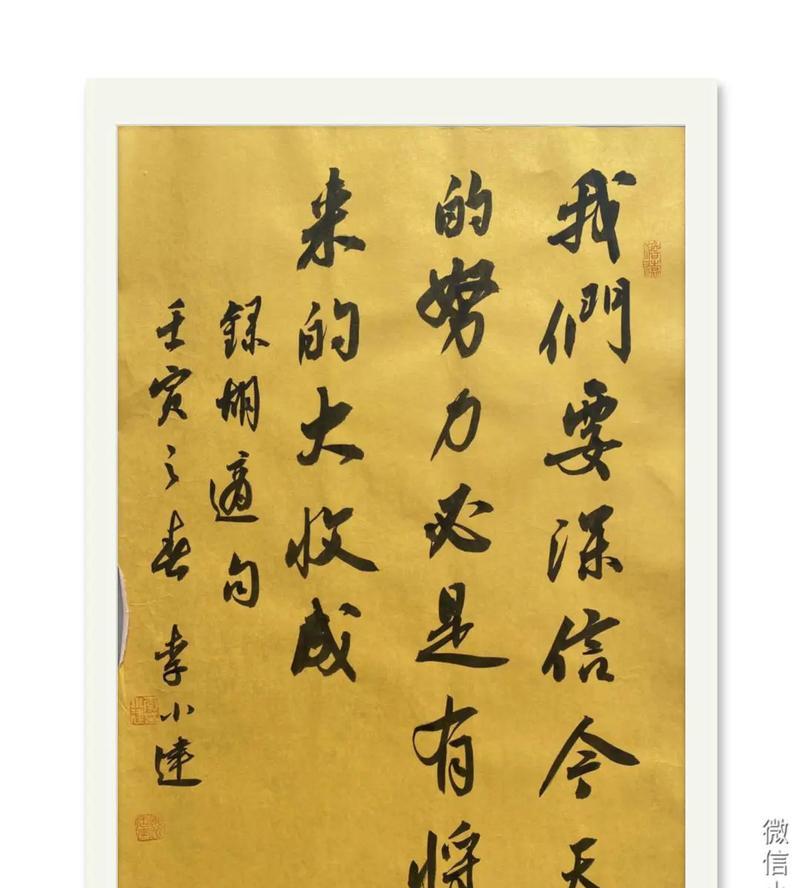 我們要深信今天
的努力必是有將
来的大收成
錄胡適句
壬寅之春 李小達
微信